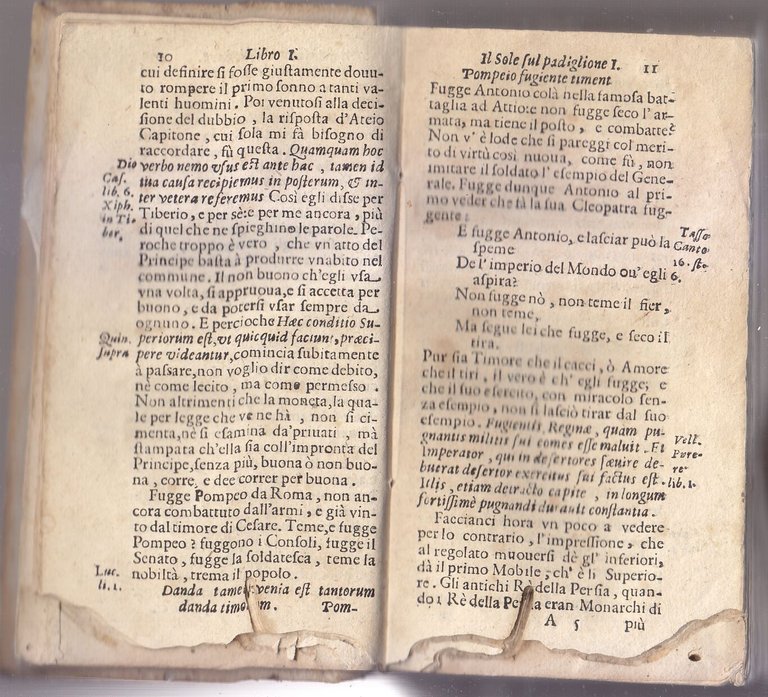 10 Libro I.
cui definire si fosse giustamente douu-
to rompere il primo sonno a tanti va-
lenti huomini. Poi venutosi alla deci-
sione del dubbio, la risposta d'Ateio
Capitone, cui sola mi fà bisogno di
raccordare, fù questa. Quamquam hoc
Dio verbo nemo vsus est ante hac, tamen id
Cass. tua causa recipiemus in posterum, & in-
lib. 6. ter vetera referemus Così egli disse per
Xiph. Tiberio, e per sè: e per me ancora, più
in Ti di quel che ne spieghino le parole. Pe-
ber. roche troppo è vero, che vn atto del
Principe basta à produrre vn abito nel
commune. Il non buono ch'egli vsa
vna volta, si appruoua, e si accetta per
buono, e da potersi vsar sempre da
ognuno. E percioche Hæc conditio Su-
Quin. periorum est, vt quicquid faciunt, præci-
supra pere videantur, comincia subitamente
à passare, non voglio dir come debito,
nè come lecito, ma come permesso.
Non altrimenti che la moneta, la qua-
le per legge che ve ne hà, non si ci-
menta, nè si esamina da' priuati, mà
stampata ch'ella sia coll'impronta del
Principe, senza più, buona ò non buo-
na, corre, e dee correr per buona.
Fugge Pompeo da Roma, non an-
cora combattuto dall'armi, e già vin-
to dal timore di Cesare. Teme, e fugge
Pompeo? fuggono i Consoli, fugge il
Senato, fugge la soldatesca, teme la
Luc. nobiltà, trema il popolo.
li. 1. Danda tamen venia est tantorum
danda timorum. Pom-
Il Sole sul padiglione I. 11
Pompeio fugiente timent
Fugge Antonio colà nella famosa bat-
taglia ad Attio: e non fugge seco l'ar-
mata, ma tiene il posto, e combatte?
Non v'è lode che si pareggi col meri-
to di virtù così nuoua, come fù, non
imitare il soldato l'esempio del Gene-
rale. Fugge dunque Antonio al pri-
mo veder che fà la sua Cleopatra fug-
gente:
E fugge Antonio, e lasciar può la Tasso
speme Canto
De l'imperio del Mondo ou'egli 16. ste.
aspira? 6.
Non fugge nò, non teme il fier,
non teme,
Ma segue lei che fugge, e seco il
tira.
Pur sia Timore che il cacci, ò Amore
che il tiri, il vero è ch'egli fugge; e
che il suo esercito, con miracolo sen-
za esempio, non si lasciò tirar dal suo
esempio. Fugientis Reginæ, quam pu-
gnantis militis sui comes esse maluit. Et Vell.
Imperator, qui in desertores sæuire de- Pare-
buerat desertor exercitus sui factus est. re
Illis, etiam detracto capite, in longum lib. 1.
fortissimè pugnandi durauit constantia.
Faccianci hora vn poco a vedere
per lo contrario, l'impressione, che
al regolato muouersi de gl' inferiori,
dà il primo Mobile, ch'è il Superio-
re. Gli antichi Rè della Persia, quan-
do i Rè della Persia eran Monarchi di
A 5 più